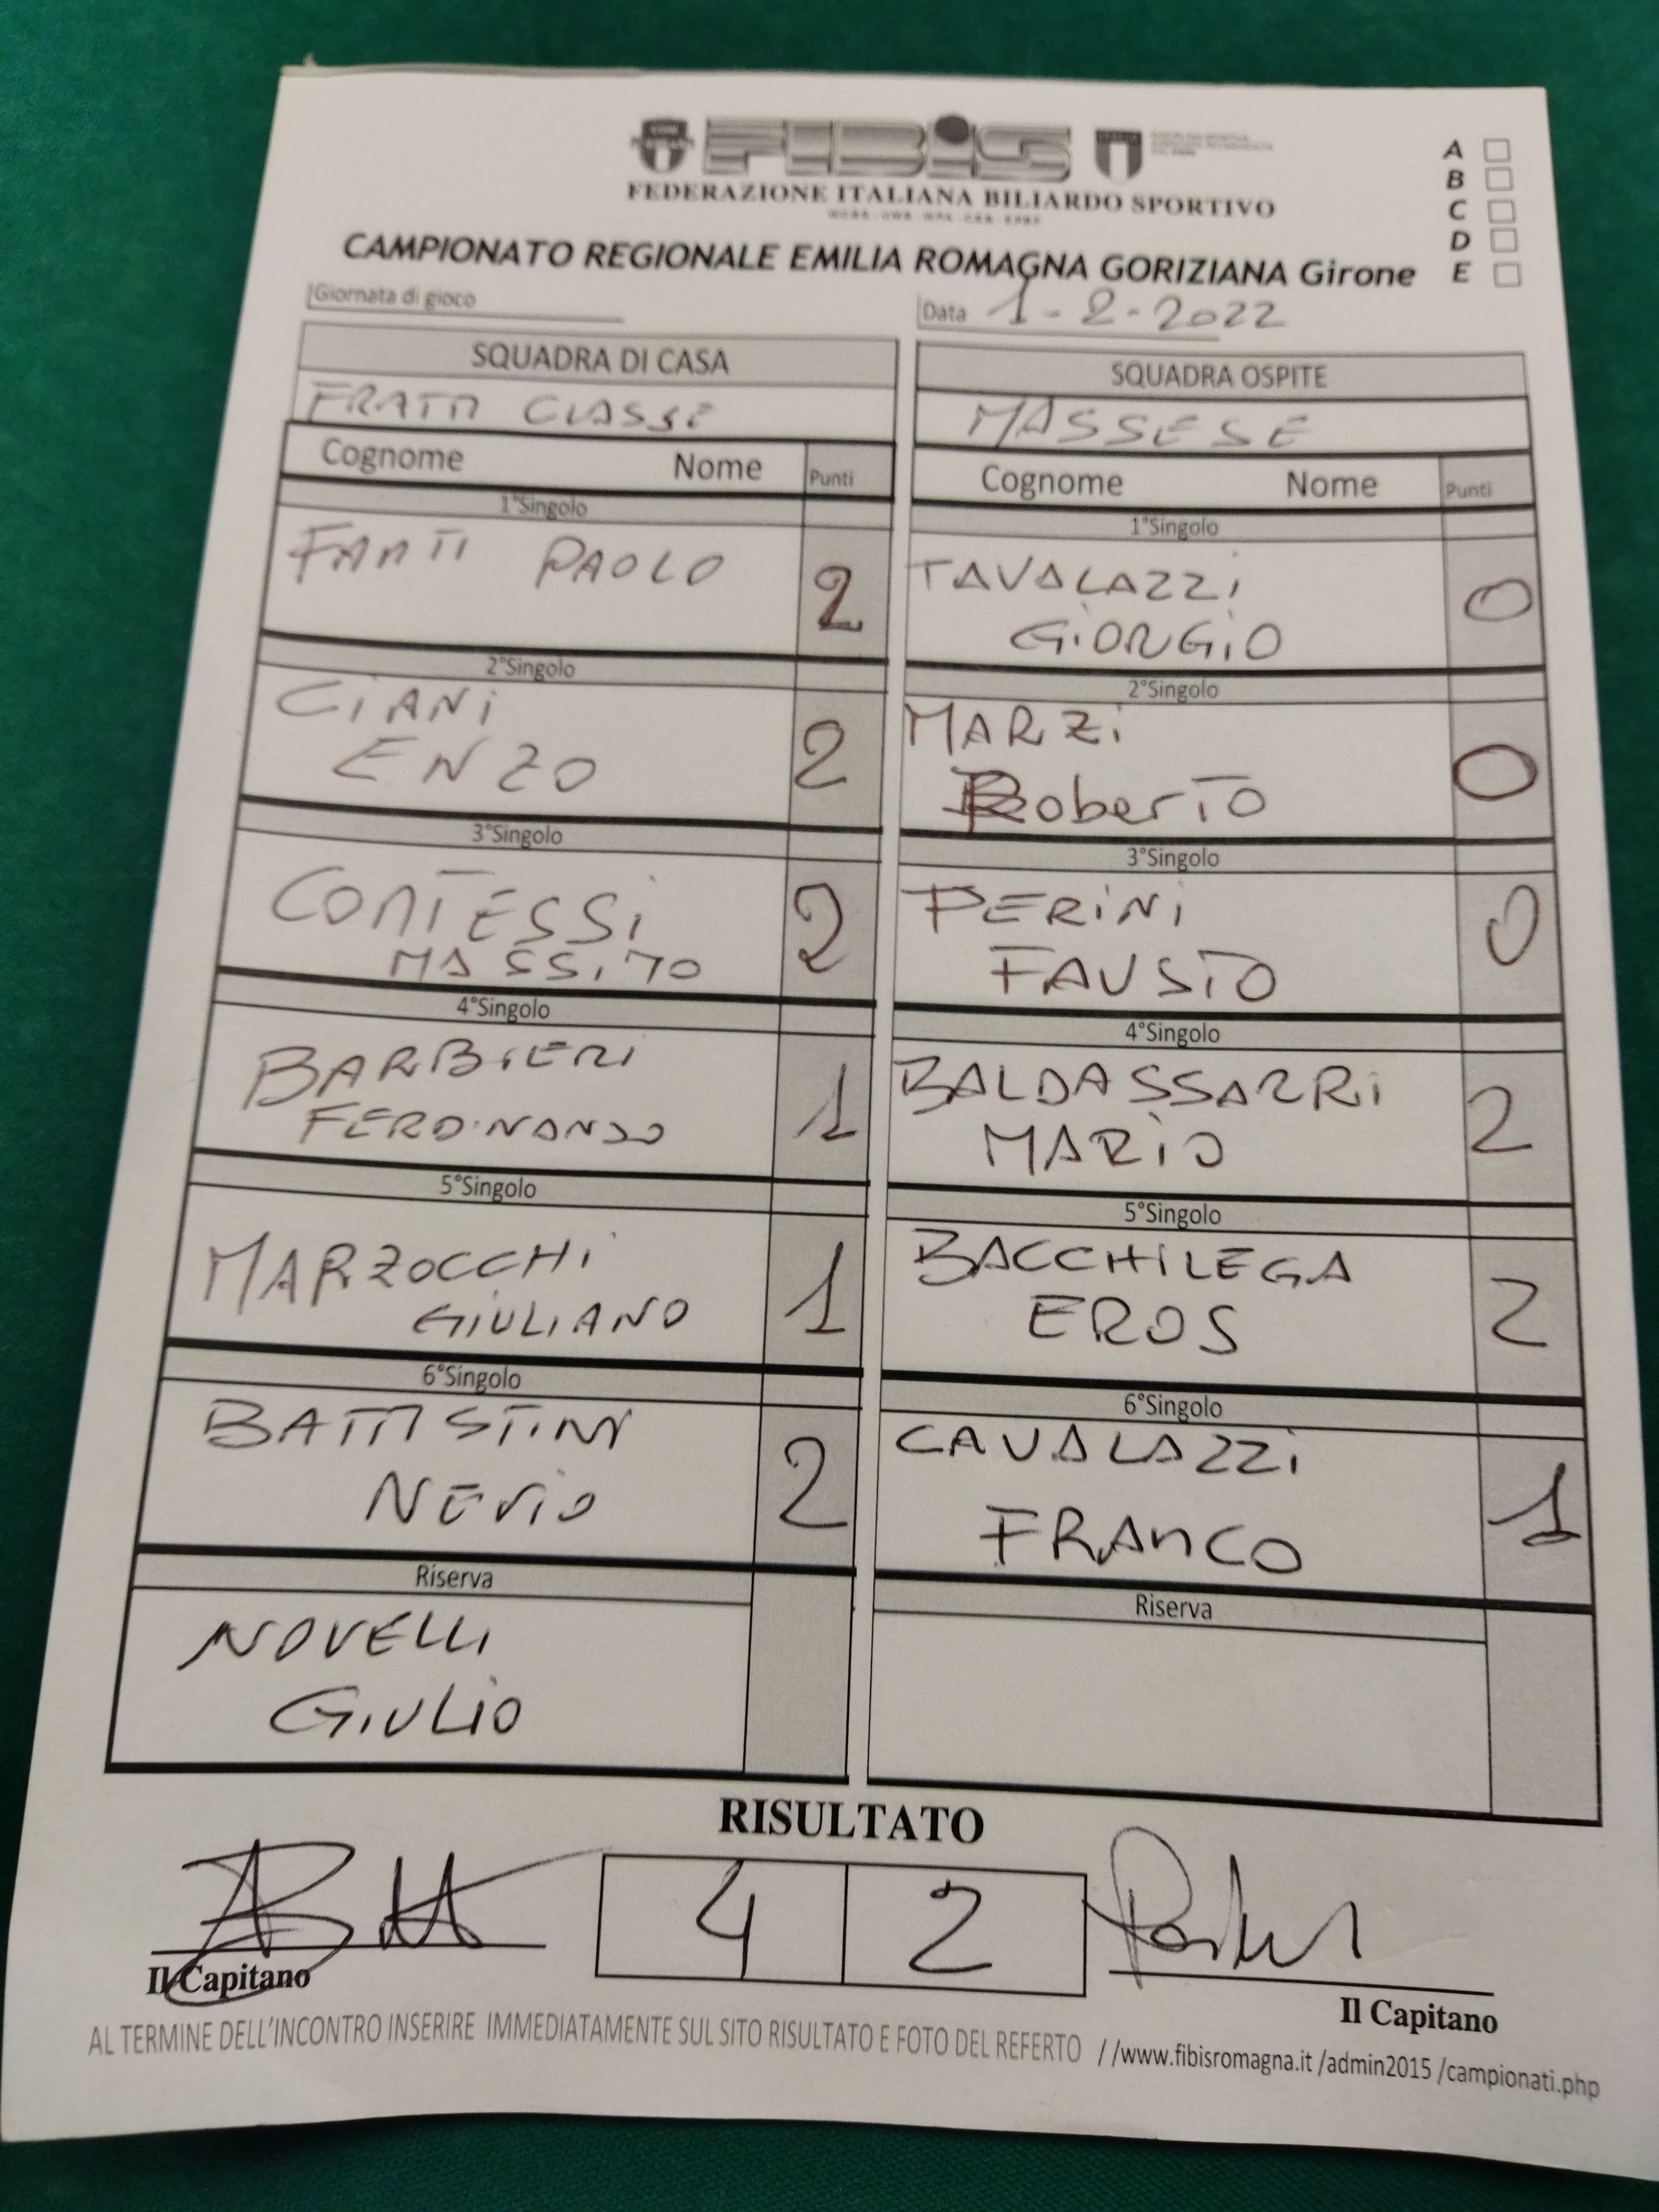 FIBiS
FEDERAZIONE ITALIANA BILIARDO SPORTIVO
A
B
C
D
E
CAMPIONATO REGIONALE EMILIA ROMAGNA GORIZIANA Girone
Giornata di gioco
Data 1-2-2022
SQUADRA DI CASA
FRATTI CLASSE
SQUADRA OSPITE
MASSESE
Cognome Nome Punti
Cognome Nome Punti
1°Singolo
FANTI PAOLO 2
1°Singolo
TAVALAZZI
GIORGIO 0
2°Singolo
CIANI
ENZO 2
2°Singolo
MARZI
Roberto 0
3°Singolo
CONTESSI
MASSIMO 2
3°Singolo
PERINI
FAUSTO 0
4°Singolo
BARBIERI
FERDINANDO 1
4°Singolo
BALDASSARRI
MARIO 2
5°Singolo
MARZOCCHI
GIULIANO 1
5°Singolo
BACCHILEGA
EROS 2
6°Singolo
BATTISTINI
NEVIO 2
6°Singolo
CAVALAZZI
FRANCO 1
Riserva
NOVELLI
GIULIO
Riserva
RISULTATO
4 2
Il Capitano
Il Capitano
AL TERMINE DELL'INCONTRO INSERIRE IMMEDIATAMENTE SUL SITO RISULTATO E FOTO DEL REFERTO //www.fibisromagna.it /admin2015 /campionati.php